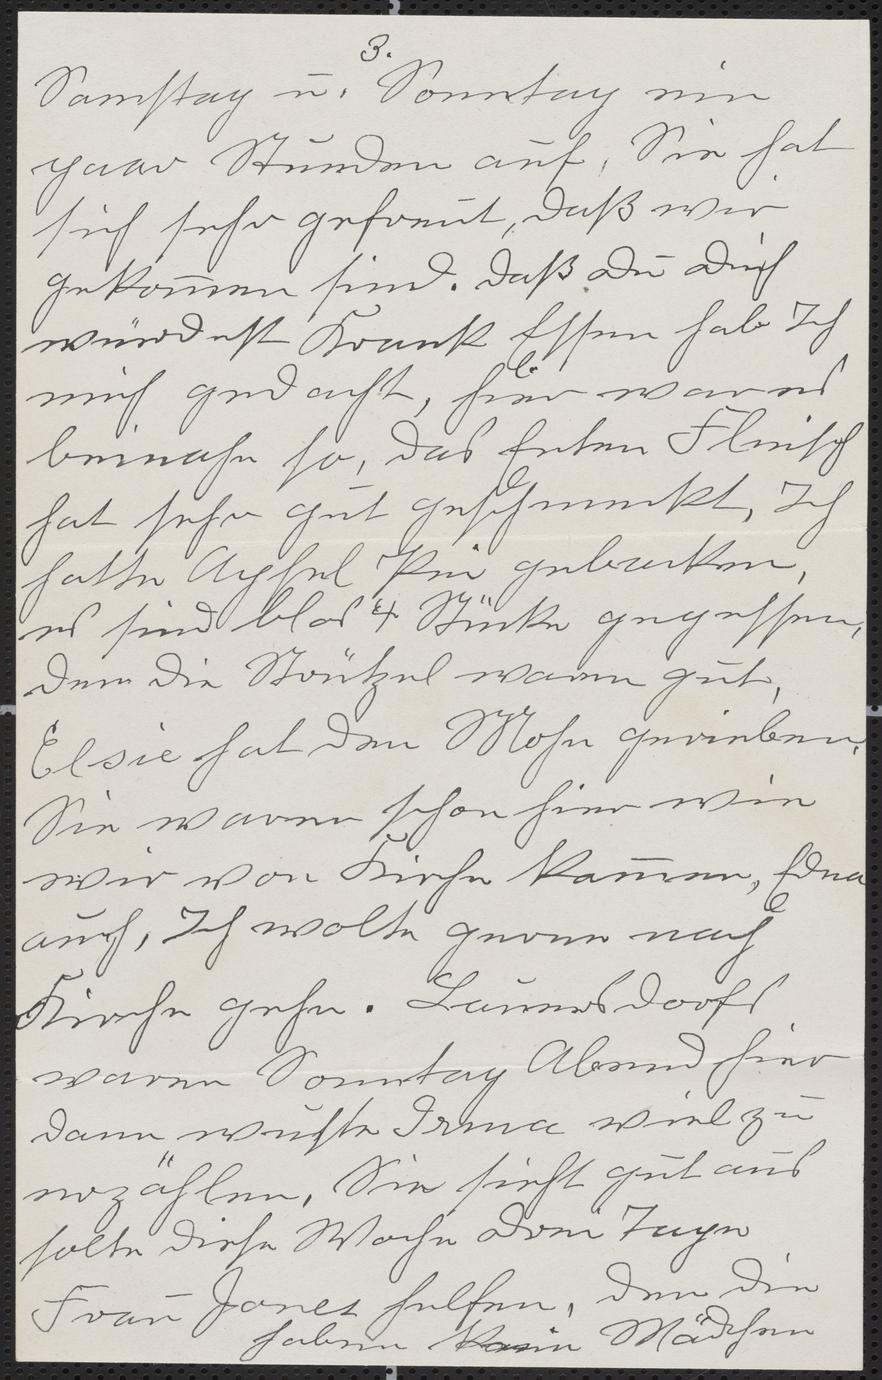 3.
Samstag u. Sonntag ein
paar Stunden auf, Sie hat
sich sehr gefreut, daß wir
gekom̅en sind. daß Du Dich
würdest Krank Essen hab Ich
mich gedacht, hier war es
beinahe so, das Enten Fleisch
hat sehr gut geschmeckt, Ich
hatte Apfel Pei gebacken,
es sind blos 4 Stücke gegessen,
den die Strützel waren gut,
Elsie hat den Mohn gerieben,
Sie waren schon hier wie
wir von Kirche kam̅en, Edna
auch, Ich wolte gerne nach
Kirche gehn. Lauersdorfs
waren Sonntag Abend hier
dann wuste Irma viel zu
erzählen, Sie sieht gut aus
solte diese Woche drei Tage
Frau Jones helfen, den die
haben kein Mädchen